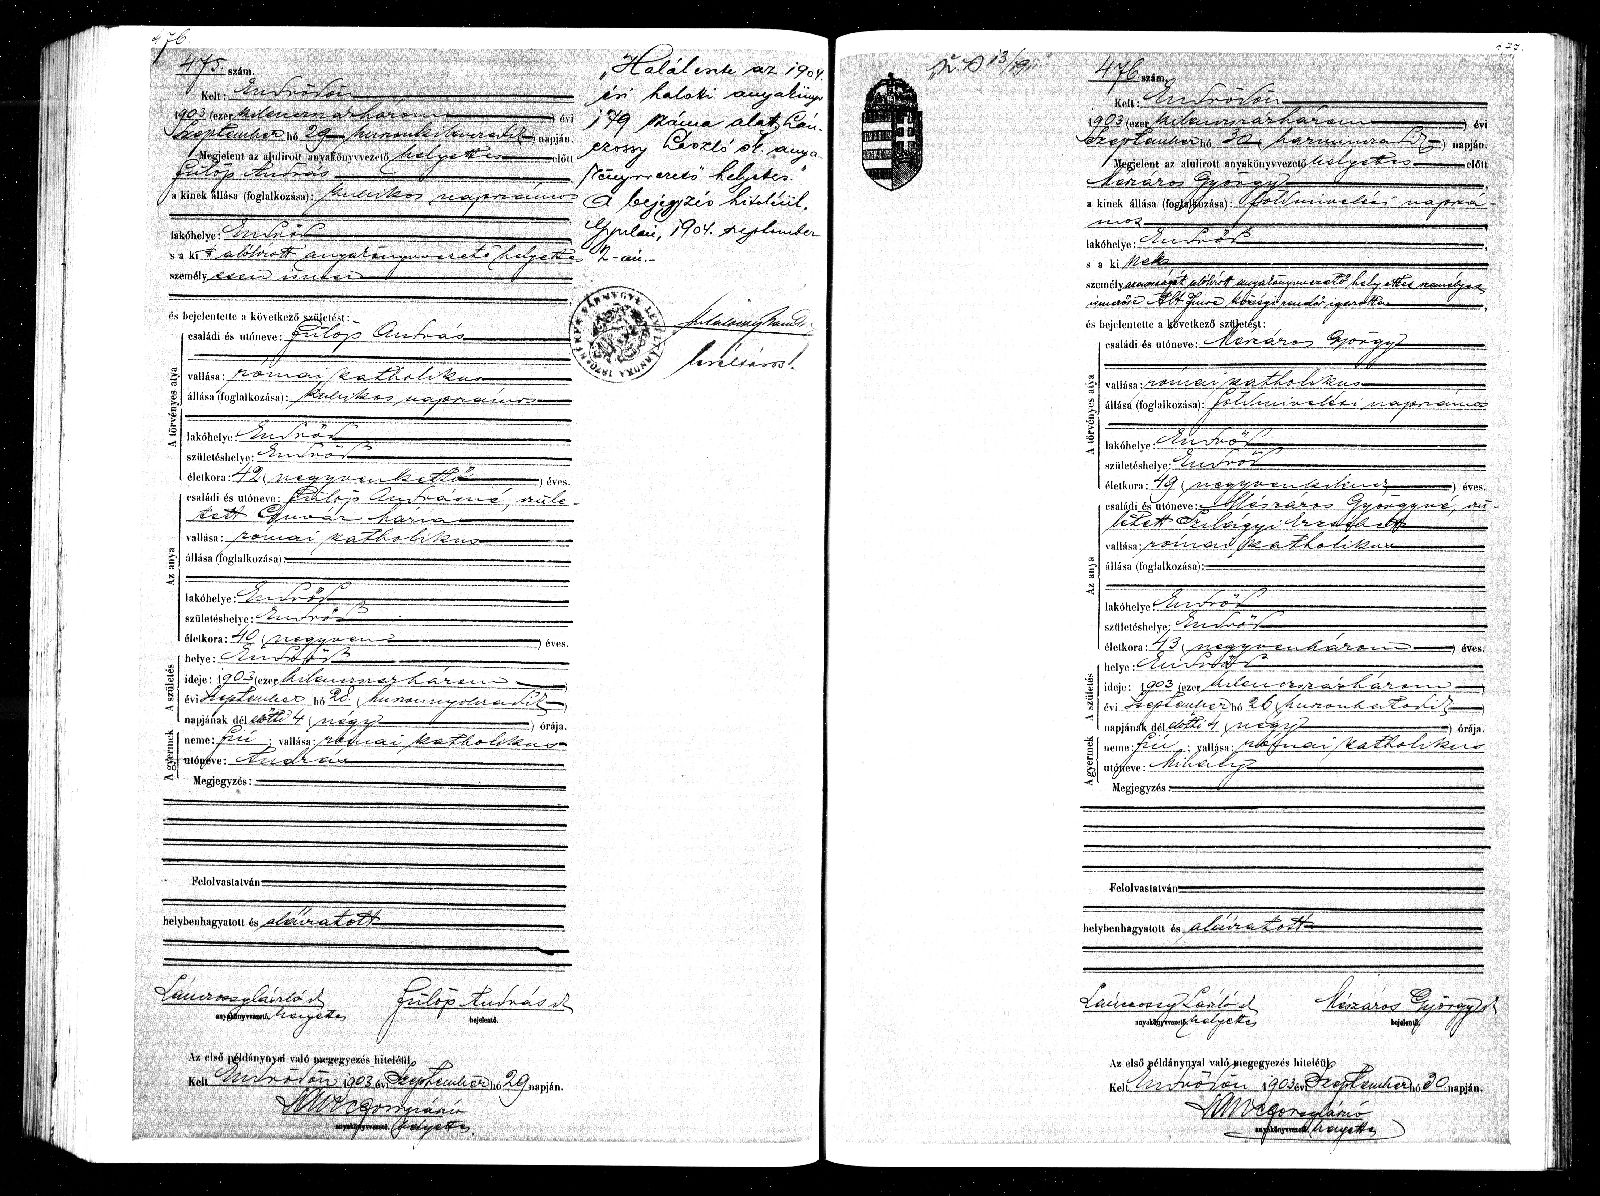 476
475. szám.
Kelt: Endrődön
1903 (ezer kilencszázhárom) évi
Szeptember hó 29 huszonkilencedik) napján.
Megjelent az alulirott anyakönyvvezető helyettes előtt
Fülöp András
a kinek állása (foglalkozása): kubikos napszámos
lakóhelye: Endrőd
s a ki t alólirott anyakönyvvezető helyettes
személyesen ismer
és bejelentette a következő születést:
A törvényes atya
családi és utóneve: Fülöp András
vallása: római katholikus
állása (foglalkozása): kubikos napszámos
lakóhelye: Endrőd
születéshelye: Endrőd
életkora: 42 (negyvenkettő) éves.
Az anya
családi és utóneve: Fülöp Andrásné, szüle-
tett Mária
vallása: római katholikus
állása (foglalkozása):
lakóhelye: Endrőd
születéshelye: Endrőd
életkora: 40 (negyven) éves.
A születés
helye: Endrőd
ideje: 1903 (ezer kilencszázhárom)
évi Szeptember hó 28 (huszonnyolcadik)
napjának dél előtti 4 (négy) órája.
A gyermek
neme: fiú; vallása: római katholikus
utóneve: András
Megjegyzés:
Felolvastatván
helybenhagyatott és aláiratott
Lánczossy László sk
anyakönyvvezető helyettes
Fülöp András sk
bejelentő.
Az első példánynyal való megegyezés hiteléül.
Kelt Endrődön 1903 évi Szeptember hó 29 napján.
Lánczossy László
anyakönyvvezető helyettes
„Halálesete az 1904.
évi halotti anyakönyv
179 száma alatt. Lán-
czossy László sk. anya-
könyvvezető helyettes."
A bejegyzés hiteléül.
Gyulán, 1904. szeptember
2-án.
BÉKÉSVÁRMEGYE LEVÉLTÁRNOKA 1870
levéltárnok.
13/19
476 szám.
Kelt: Endrődön
1903 (ezer kilencszázhárom) évi
Szeptember hó 30 harmincadik) napján.
Megjelent az alulirott anyakönyvvezető helyettes előtt
Mészáros György
a kinek állása (foglalkozása): földmivelési napszá-
mos
lakóhelye: Endrőd
s a ki nek
személyazonosságát alólirott anyakönyvvezető helyettes személyesen
ismerőse Alt Imre községi rendőr igazolta
és bejelentette a következő születést:
A törvényes atya
családi és utóneve: Mészáros György
vallása: római katholikus
állása (foglalkozása): földmivelési napszámos
lakóhelye: Endrőd
születéshelye: Endrőd
életkora: 49 (negyvenkilenc) éves.
Az anya
családi és utóneve: Mészáros Györgyné, szü-
letett Szilágyi Erzsébet
vallása: római katholikus
állása (foglalkozása):
lakóhelye: Endrőd
születéshelye: Endrőd
életkora: 43 (negyvenhárom) éves.
A születés
helye: Endrőd
ideje: 1903 (ezer kilencszázhárom)
évi Szeptember hó 26 (huszonhatodik)
napjának dél előtti 4 (négy) órája.
A gyermek
neme: fiú; vallása: római katholikus
utóneve: Mihály
Megjegyzés
Felolvastatván
helybenhagyatott és aláiratott
Lánczossy László sk
anyakönyvvezető helyettes
Mészáros György sk
bejelentő.
Az első példánynyal való megegyezés hiteléül.
Kelt Endrődön 1903 évi Szeptember hó 30 napján.
Lánczossy László
anyakönyvvezető helyettes